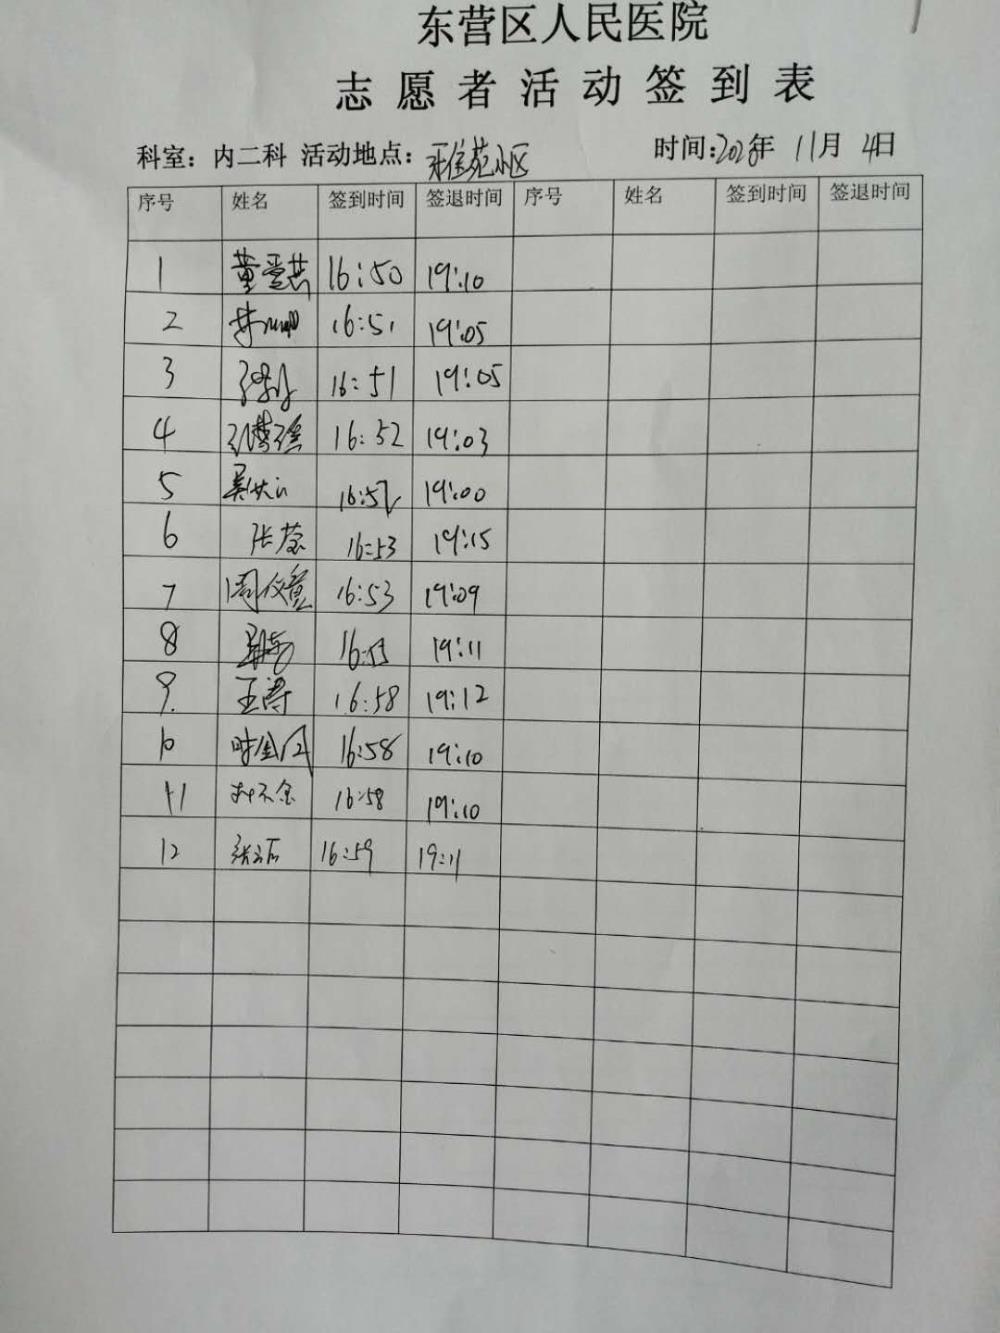 东营区人民医院
志愿者活动签到表
科室：内二科 活动地点：雅佳苑小区 时间：2028年 11月 4日
序号 姓名 签到时间 签退时间 序号 姓名 签到时间 签退时间
1 16:50 19:10
2 16:51 19:05
3 16:51 19:05
4 16:52 19:03
5 16:52 19:00
6 张蕊 16:53 19:15
7 周仪萱 16:53 19:09
8 16:53 19:11
9. 王涛 16:58 19:12
10 时金凤 16:58 19:10
11 16:58 19:10
12 16:59 19:11